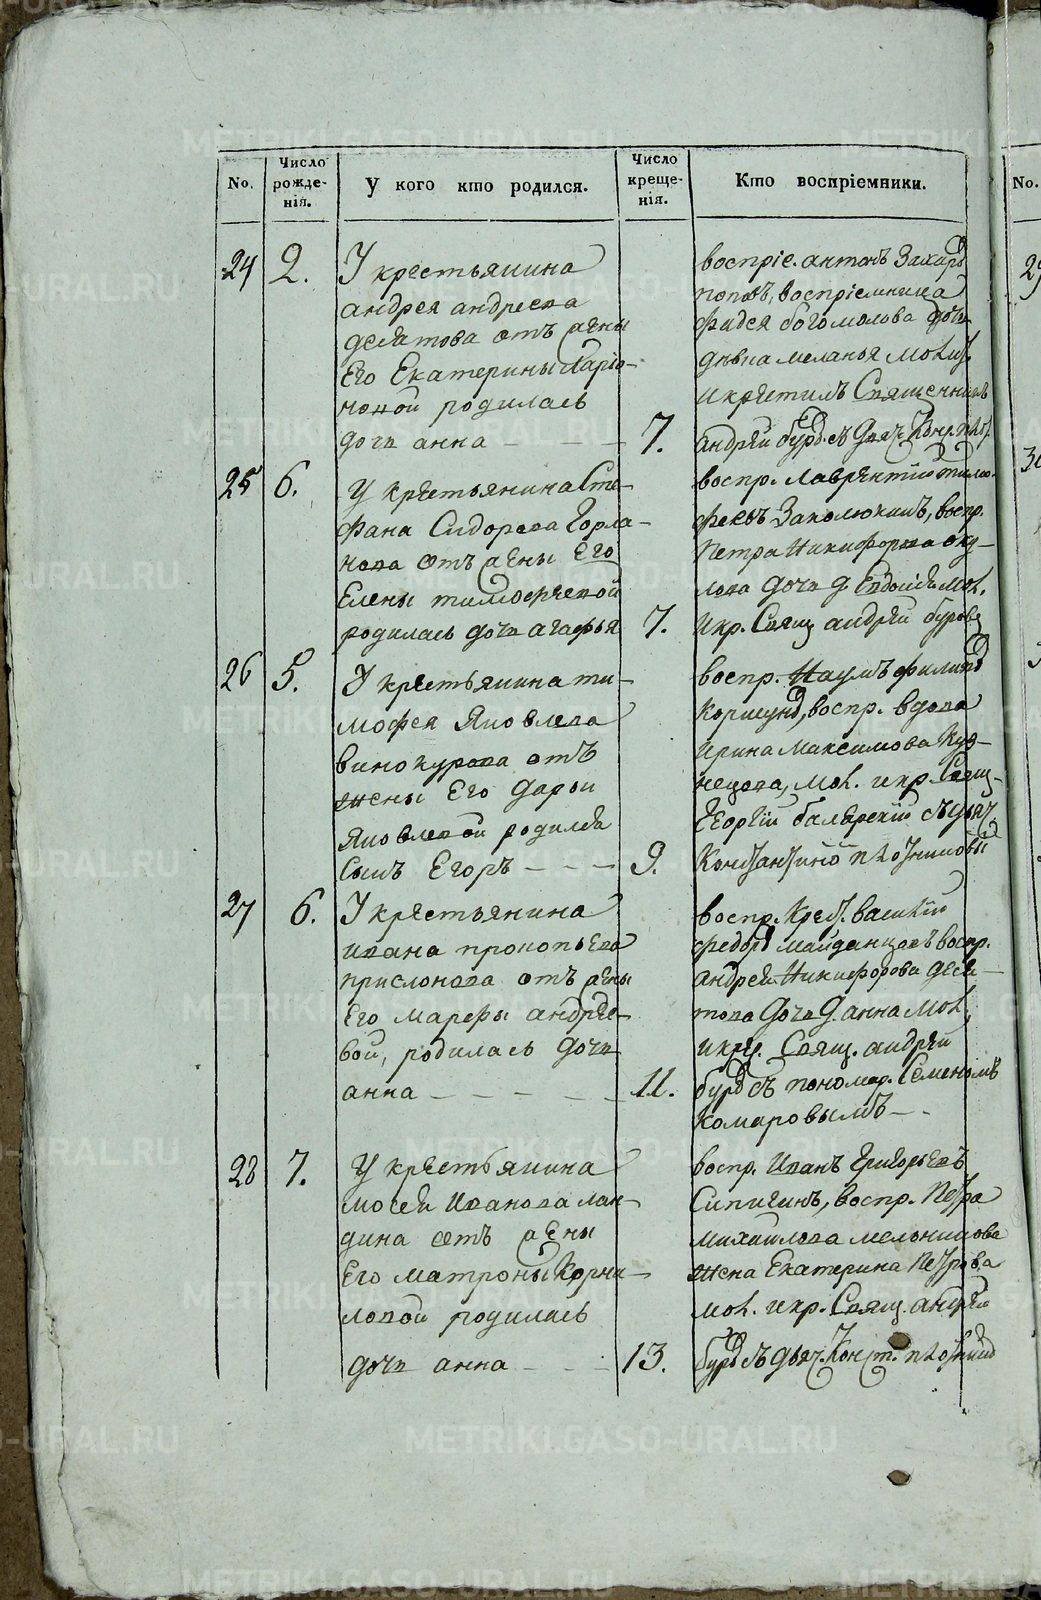 No.
Число рожде-нія.
У кого кто родился.
Число креще-нія.
Кто воспріемники.
No.
24
2.
У крестьянина
андрея андреева
десятова отъ жены
Его Екатерины Иларіо-
новой родилась
дочь анна
7.
воспріе. антонъ Захаръ
поповъ, воспріемница
фадея богомолова дочь
дѣвка меланья
и крестилъ Священникъ
андрей
25
6.
У крестьянина Сте-
фана Сидорова Горла-
нова отъ жены Его
Елены тимофеевой
родилась дочь агафья
7.
воспр. лаврентій тимо-
феевъ Заколюкинъ, воспр.
Петра Никифорова оку-
лова дочь д. Евдокія
и кр. Свящ андрей буровъ
26
5.
У крестьянина ти-
мофея Яковлева
винокурова отъ
жены Его дарьи
Яковлевой родился
сынъ Егоръ
9.
воспр. Наумъ филипъ
коршунъ, воспр. вдова
Ирина Максимова Куз-
нецова, и кр. Свящ-
Георгій
27
6.
У крестьянина
ивана прокопьева
прислонова отъ жены
Его марфы андрее-
вой, родилась дочь
анна
11.
воспр. Крест. василій
федоръ майданцовъ воспр.
андрея Никифорова деся-
това дочь д. анна
и кре. Свящ. андрей
буръ съ пономар. Семеномъ
комаровымъ
28
7.
У крестьянина
мосея Иванова лан-
дина отъ жены
Его матроны Корни-
ловой родилась
дочь анна
13.
воспр. Иванъ Григорьевъ
Сипигинъ, воспр. Петра
михайлова мельникова
жена Екатерина Петрова
и кр. Свящ. андрей
METRIKI.GASO-URAL.RU